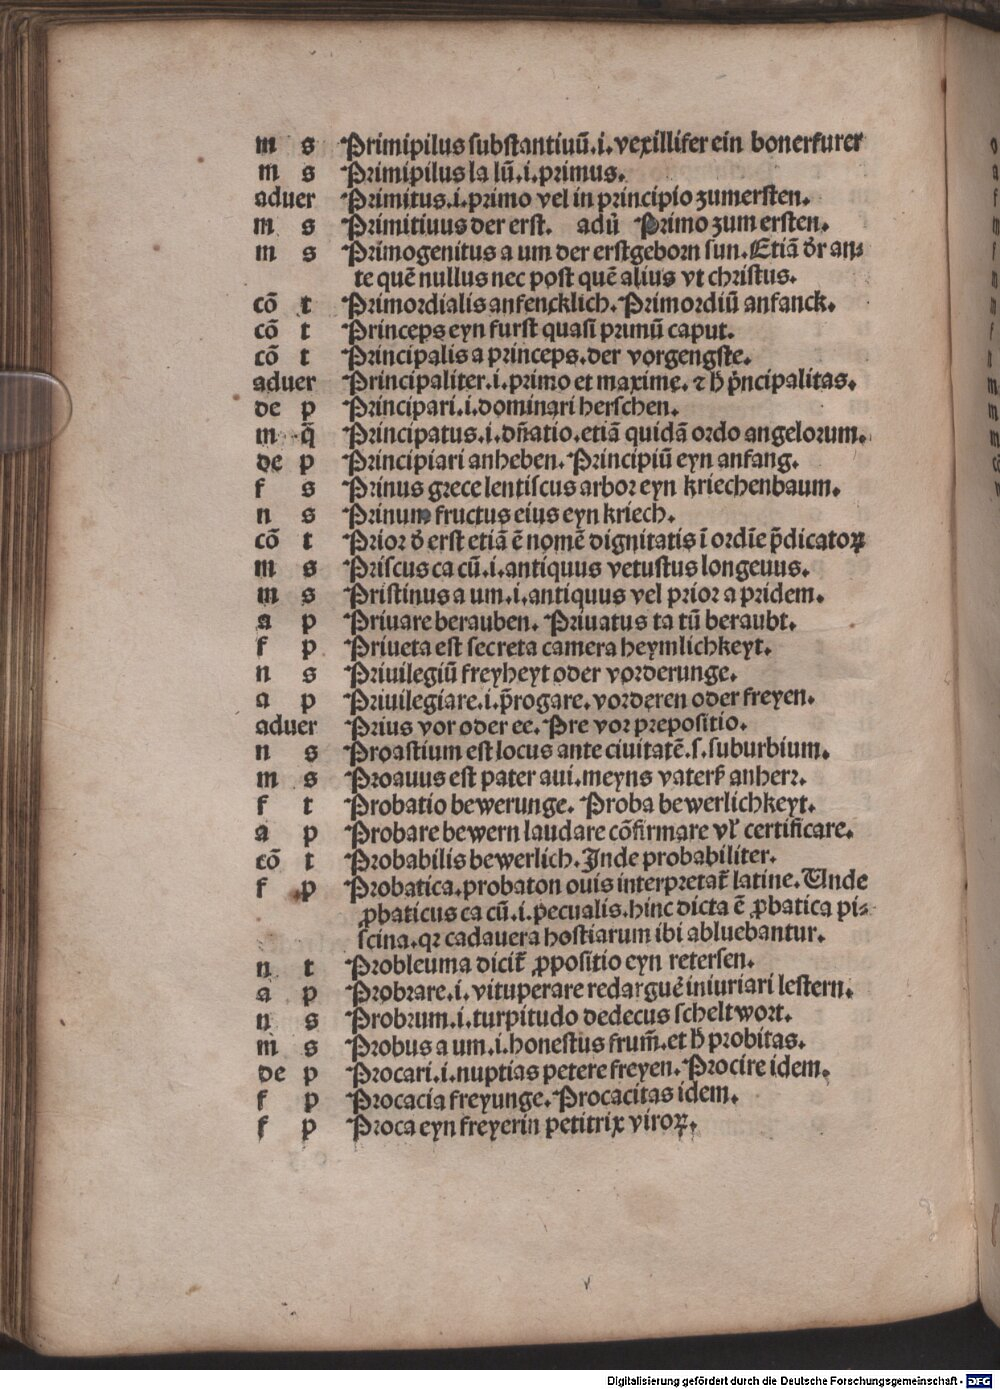 m s Primipilus substantiuū.i.vexillifer ein bonerfurer
m s Primipilus la lū.i.primus.
aduer Primitus.i.primo vel in principio zumersten.
m s Primitiuus der erst. adū Primo zum ersten.
m s Primogenitus a um der erstgeborn sun. Etiā dr̄ an⸗
te quē nullus nec post quē alius vt christus.
cō t Primordialis anfencklich. Primordiū anfanck.
cō t Princeps eyn furst quasi primū caput.
cō t Principalis a princeps.der vorgengste.
aduer Principaliter.i.primo et maxime. ⁊ h̄ pͥncipalitas.
de p Principari.i.dominari herschen.
m q̄ Principatus.i.dn̄atio.etiā quidā ordo angelorum.
de p Principiari anheben. Principiū eyn anfang.
f s Prinus grece lentiscus arbor eyn kriechenbaum.
n s Prinum fructus eius eyn kriech.
cō t Prior d̄ erst etiā ē nomē dignitatis ī ordīe p̄dicatoꝝ
m s Priscus ca cū.i.antiquus vetustus longeuus.
m s Pristinus a um.i.antiquus vel prior a pridem.
a p Priuare berauben. Priuatus ta tū beraubt.
f p Priueta est secreta camera heymlichkeyt.
n s Priuilegiū freyheyt oder vorderunge.
a p Priuilegiare.i.p̄rogare.vorderen oder freyen.
aduer Prius vor oder ee. Pre vor prepositio.
n s Proastium est locus ante ciuitatē.s.suburbium.
m s Proauus est pater aui.meyns vaters̄ anherꝛ.
f t Probatio bewerunge. Proba bewerlichkeyt.
a p Probare bewern laudare cōfirmare vl̄ certificare.
cō t Probabilis bewerlich. Inde probabiliter.
f p Probatica.probaton ouis interpretat᷑ latine. Unde
ꝓbaticus ca cū.i.pecualis.hinc dicta ē ꝓbatica pi⸗
scina.qꝛ cadauera hostiarum ibi abluebantur.
n t Probleuma dicit᷑ ꝓpositio eyn retersen.
a p Probrare.i.vituperare redarguē iniuriari lestern.
n s Probrum.i.turpitudo dedecus scheltwort.
m s Probus a um.i.honestus frum̄.et h̄ probitas.
de p Procari.i.nuptias petere freyen. Procire idem.
f p Procacia freyunge. Procacitas idem.
f p Proca eyn freyerin petitrix viroꝝ.
Digitalisierung gefördert durch die Deutsche Forschungsgemeinschaft - DFG